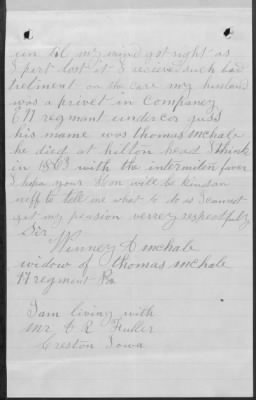 un til my mind got right as
I part lost it I recieved such bad
tretment on the care my husband
was a privet in Companey
E 97 regmant under cor guss
his mame was thomas mchale
he died at hilton head I think
in 1863 with the intermiten fever
I hope your Hon will be kind an
neff to tell me what to do as I cannot
get my pension verrey respectfuly
Sir
Winney C mchale
widow of thomas mchale
97 regiment Pa
I am living with
Mr C R Fuller
Creston Iowa